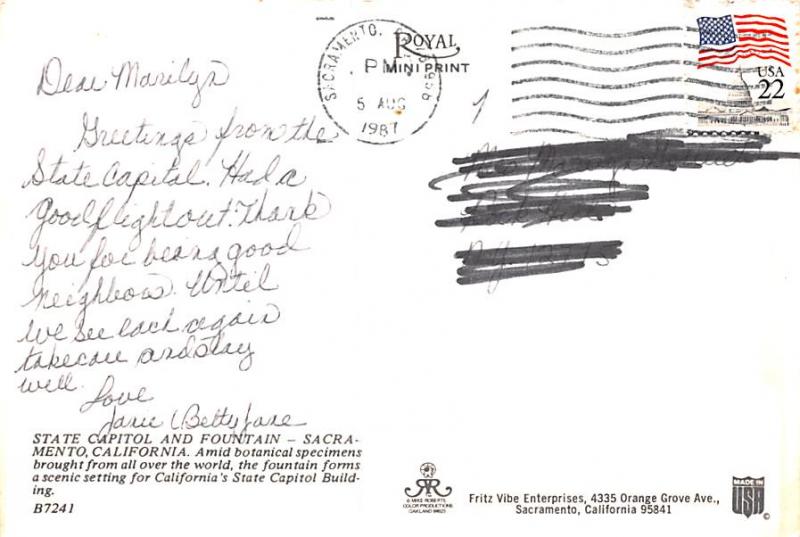 ROYAL
MINI PRINT
SACRAMENTO, CA 958
PM
5 AUG
1987
USA
22
Dear Marilyn
Greetings from the
State Capital. Had a
good flight out. Thank
you for being good
neighbors. Until
we see each again
take care and stay
well.
Love
Janie (Betty Jane
STATE CAPITOL AND FOUNTAIN – SACRA-
MENTO, CALIFORNIA. Amid botanical specimens
brought from all over the world, the fountain forms
a scenic setting for California's State Capitol Build-
ing.
B7241
© MIKE ROBERTS
COLOR PRODUCTIONS
OAKLAND 94623
Fritz Vibe Enterprises, 4335 Orange Grove Ave.,
Sacramento, California 95841
MADE IN
USA
©